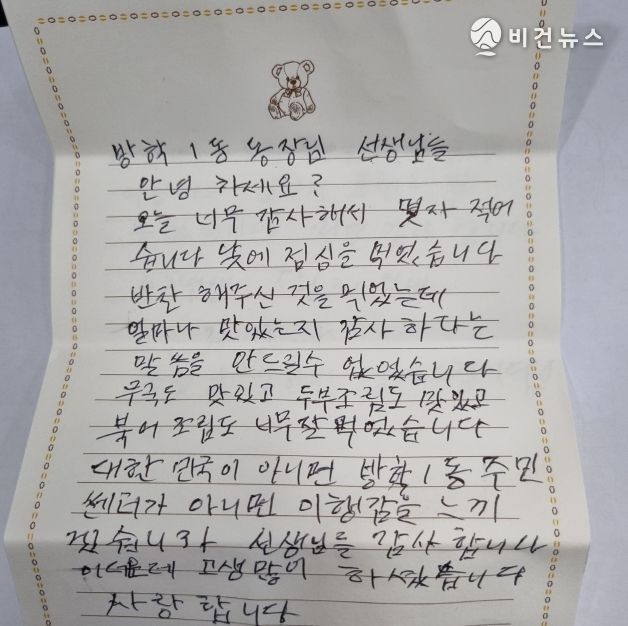 비건뉴스
방학 1동 동장님 선생님들
안녕 하세요?
오늘 너무 감사해서 몇자 적어
습니다 낮에 점심을 먹었습니다
반찬 해주신 것을 먹었는데
얼마나 맛있는지 감사 하다는
말씀을 안드릴수 없었습니다
무국도 맛있고 두부조림도 맛있고
북어 조림도 너무잘 먹었습니다
대한 민국이 아니면 방학1동 주민
쎈터가 아니면 이행감을 느끼
겠습니까 선생님들 감사 합니다
이더운데 고생많이 하셨습니다
사랑 합니다